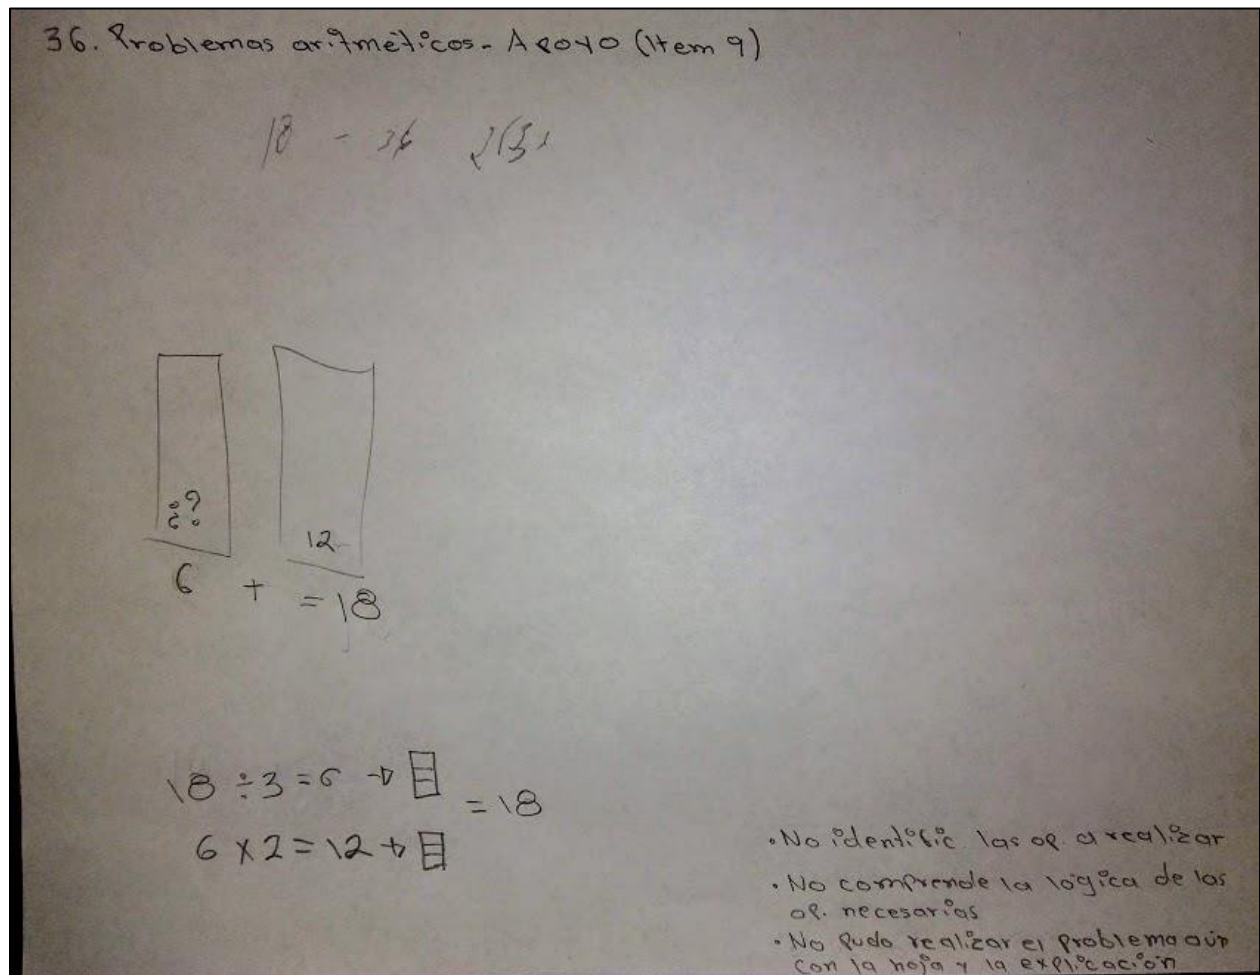 36. Problemas aritméticos - Apoyo (Item 9)
18 - 36
¿?
12
6 + = 18
18 ÷ 3 = 6 →
= 18
6 x 2 = 12 →
• No identific las op. a realizar
• No comprende la lógica de las
op. necesarias
• No pudo realizar el problema aún
con la hoja y la explicación